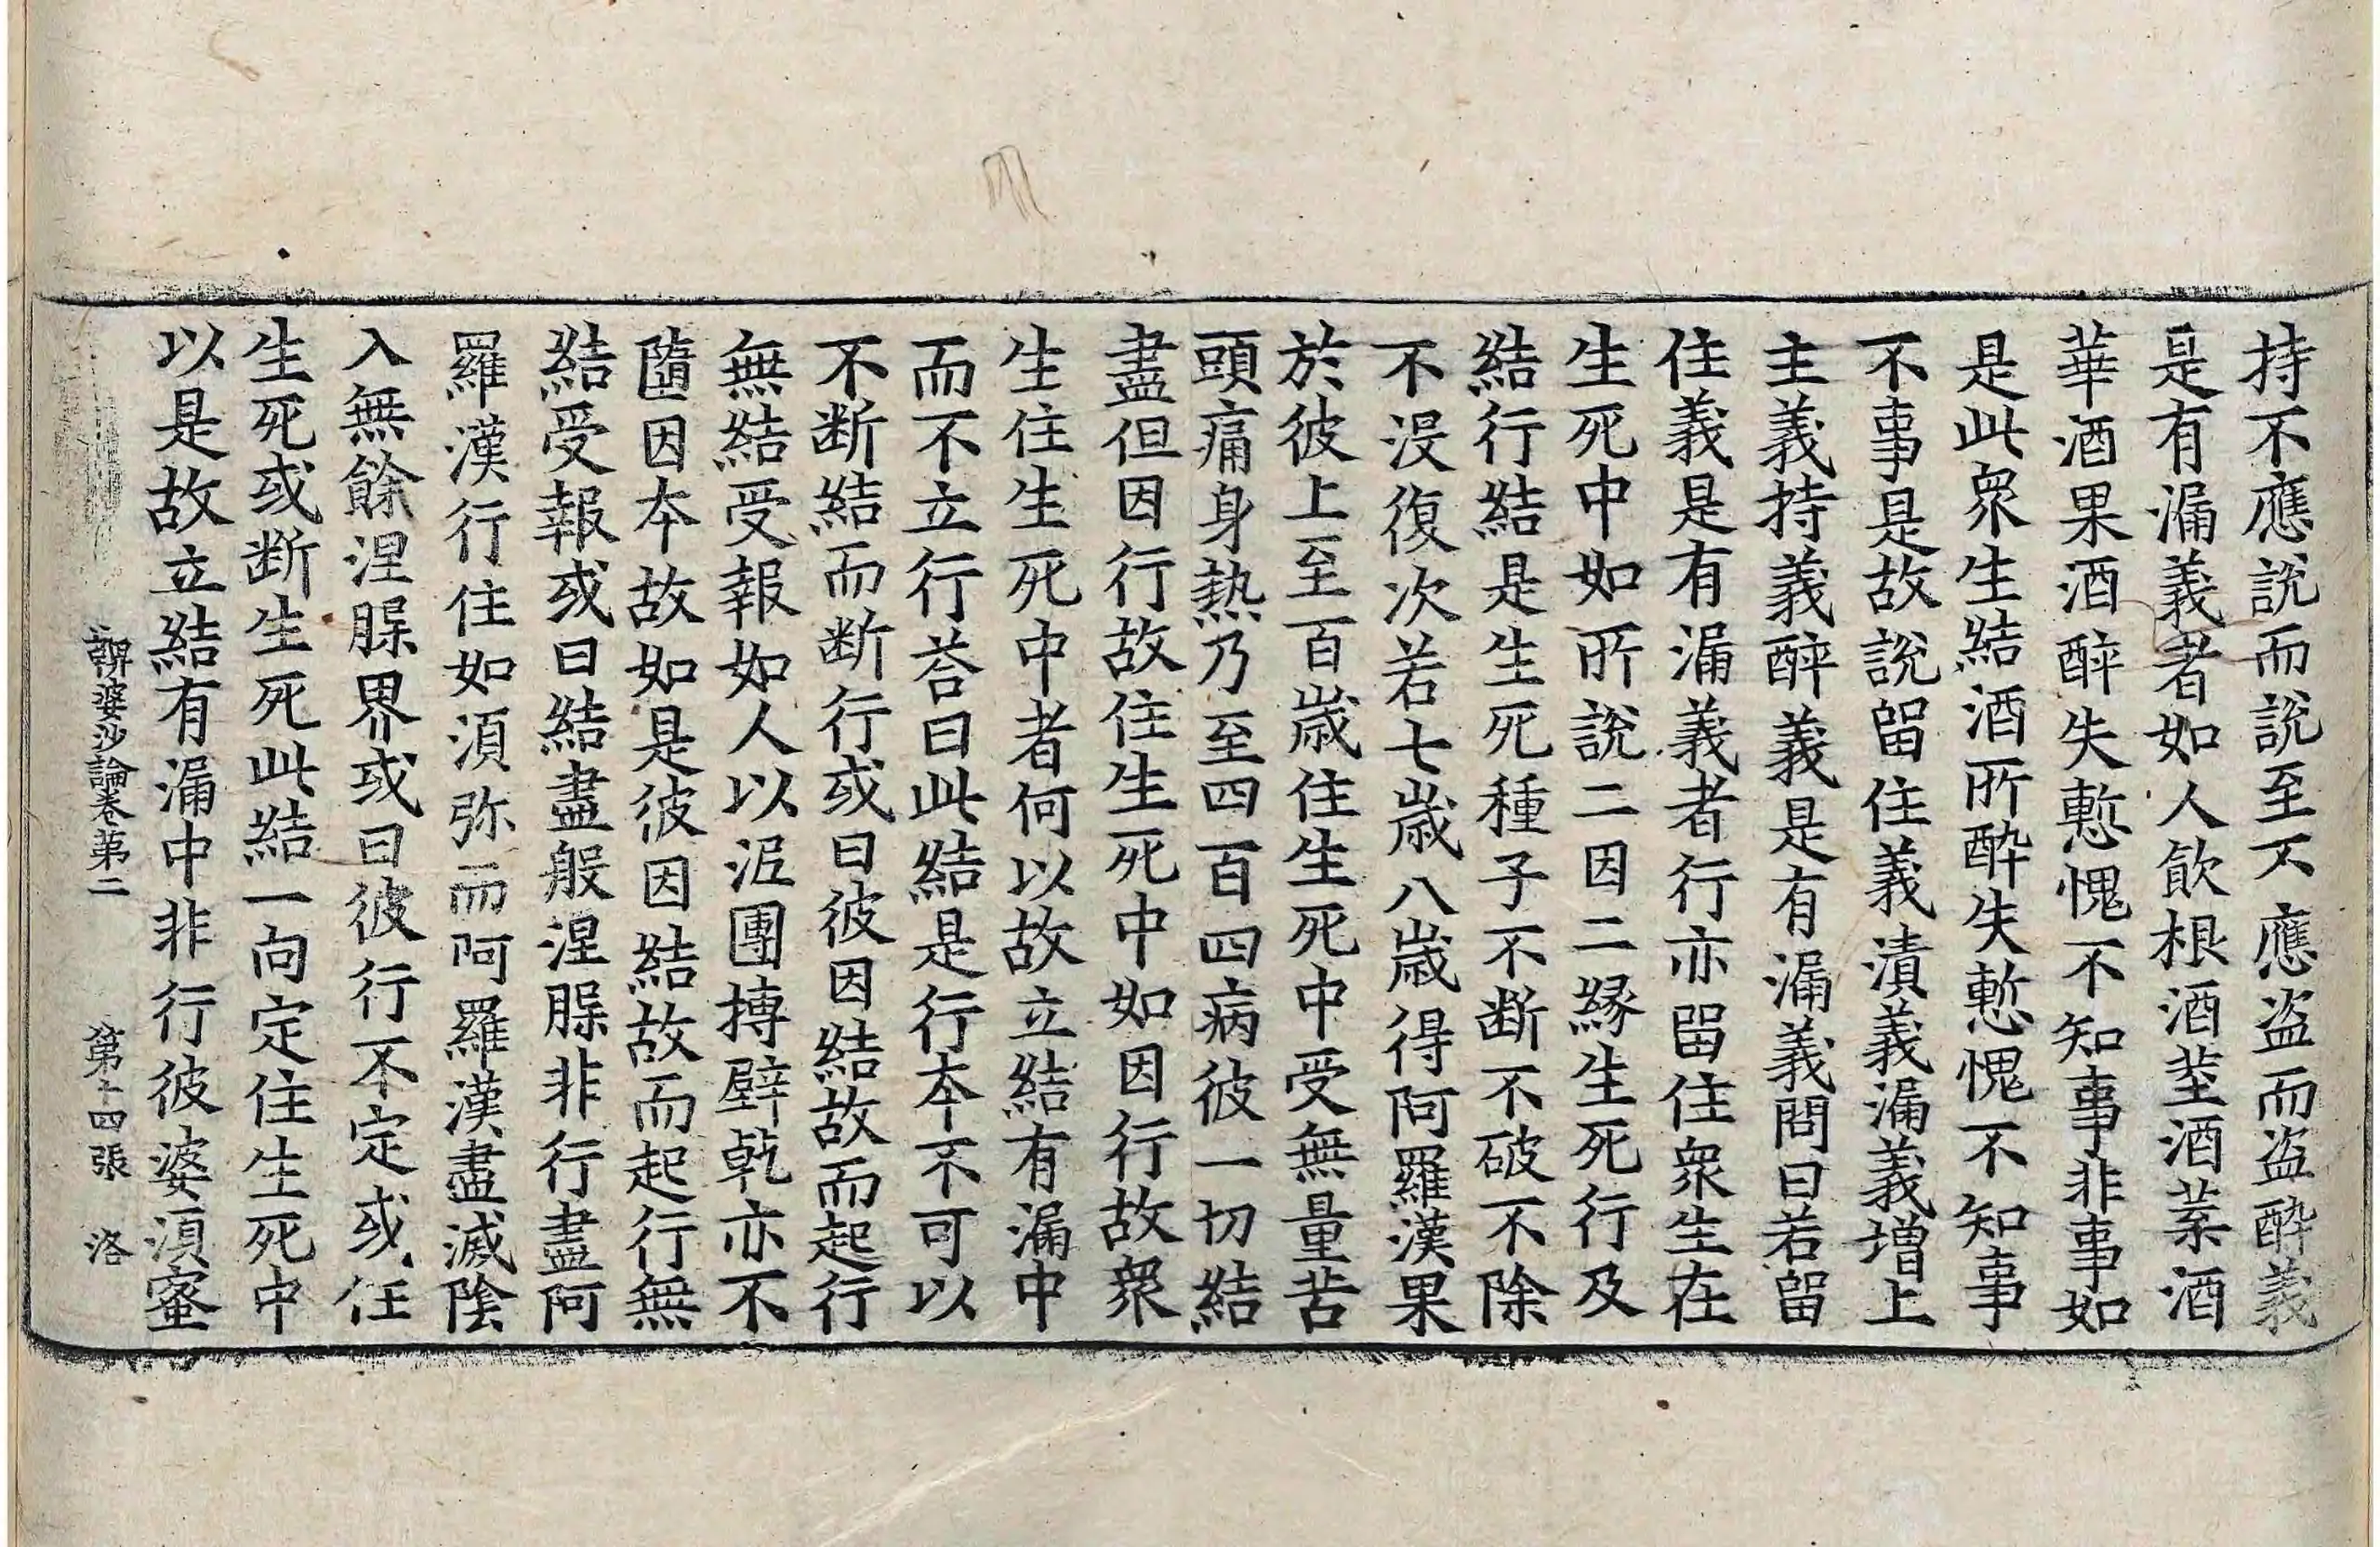 持不應說而說至不應盜而盜醉義
是有漏義者如人飲根酒莖酒葉酒
華酒果酒醉失慙愧不知事非事如
是此衆生結酒所醉失慙愧不知事
不事是故說留住義漬義漏義增上
主義持義醉義是有漏義問曰若留
住義是有漏義者行亦留住衆生在
生死中如所說二因二緣生死行及
結行結是生死種子不斷不破不除
不沒復次若七歲八歲得阿羅漢果
於彼上至百歲住生死中受無量苦
頭痛身熱乃至四百四病彼一切結
盡但因行故住生死中如因行故衆
生住生死中者何以故立結有漏中
而不立行荅曰此結是行本不可以
不斷結而斷行或曰彼因結故而起行
無結受報如人以泥團搏壁乾亦不
墮因本故如是彼因結故而起行無
結受報或曰結盡般涅槃非行盡阿
羅漢行住如湏弥而阿羅漢盡滅陰
入無餘涅槃界或曰彼行不定或住
生死或断生死此結一向定住生死中
以是故立結有漏中非行彼婆湏蜜
鞞婆沙論卷第二　第十四張　洛